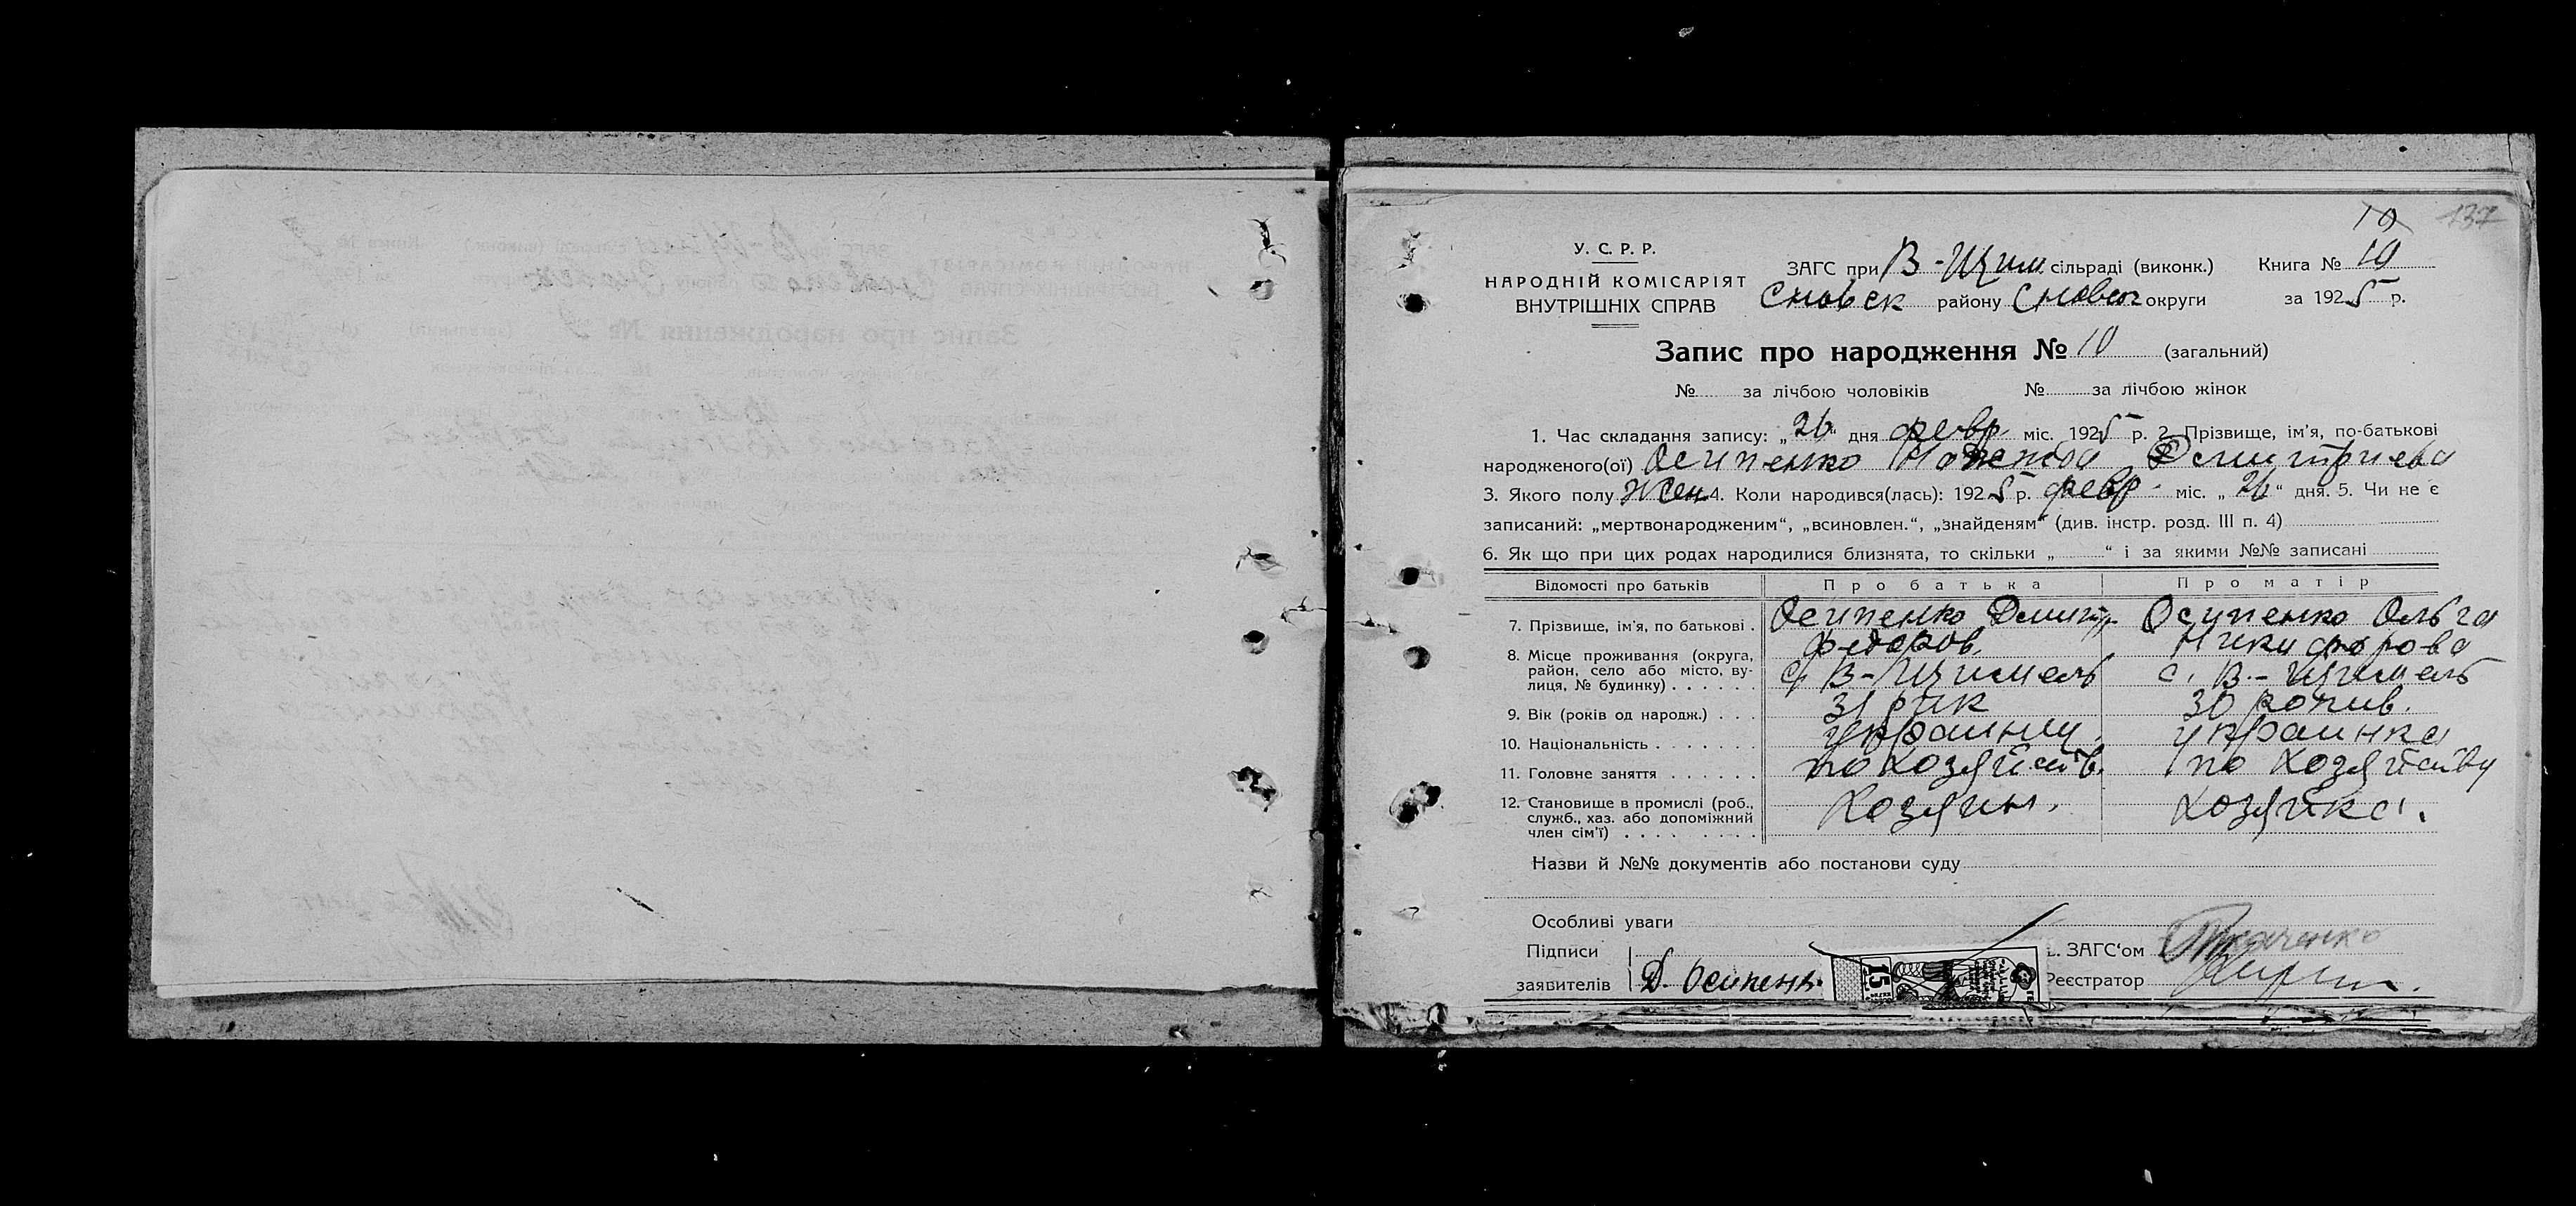 10 137
У. С. Р. Р.
НАРОДНІЙ КОМІСАРІЯТ
ВНУТРІШНІХ СПРАВ
ЗАГС при В-Щим. сільраді (виконк.) Книга № 10
Сновск району Сновск округи за 1925 р.
Запис про народження № 10 (загальний)
№ за лічбою чоловіків № за лічбою жінок
1. Час складання запису: „26“ дня февр міс. 1925 р. 2. Прізвище, ім’я, по-батькові
народженого(ої) Осипенко Надежда Дмитриева
3. Якого полу жен 4. Коли народився(лась): 1925 р. февр. міс. „26“ дня. 5. Чи не є
записаний: „мертвонародженим“, „всиновлен.“, „знайденям“ (див. інстр. розд. III п. 4)
6. Як що при цих родах народилися близнята, то скільки „ “ і за якими №№ записані
Відомості про батьків Про батька Про матір
7. Прізвище, ім’я, по батькові . Осипенко Дмитр. Федоров. Осипенко Ольга Никифорова
8. Місце проживання (округа, район, село або місто, вулиця, № будинку) . . . . . . с. В-Щимель с. В.-Щимель
9. Вік (років од народж.) . . . 31 рик 30 рокив.
10. Національність . . . . . . . украинц. украинка
11. Головне заняття . . . . . . по хозяйств. по хозяйству
12. Становище в промислі (роб., служб., хаз. або допоміжний член сім’ї) . . . . . . . . . Хозяин. хозяйка.
Назви й №№ документів або постанови суду
Особливі уваги
Підписи
заявителів Д. Осипенк.
15
ЗАГС‘ом Ткаченко
Реєстратор